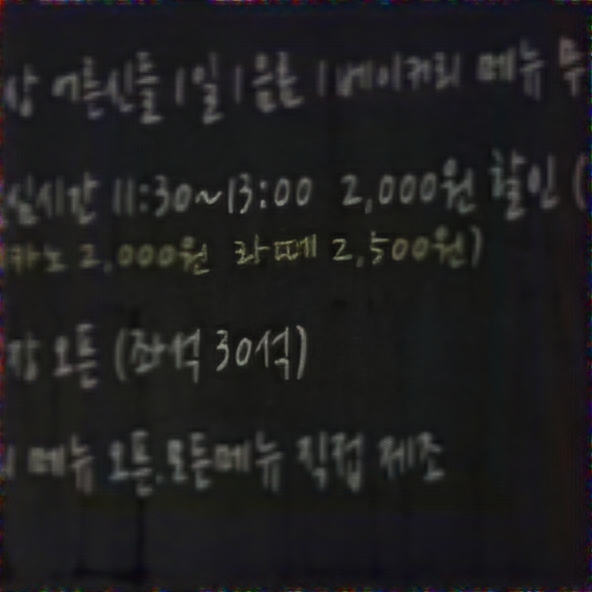 상 어른신들 1일 1음료 1베이커리 메뉴 무
점심시간 11:30~13:00 2,000원 할인 (
리카노 2,000원 라떼 2,500원)
장 오픈 (좌석 30석)
리 메뉴 오픈. 모든메뉴 직접 제조